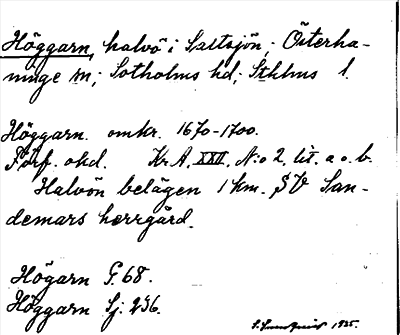 Höggarn, halvö i Saltsjön; Österha-
ninge sn; Sotholms hd; Sthlms l.
Höggarn. omkr. 1670-1700.
Förf. okd. Kr A. XXII, N:o 2, lit. a o. b.
Halvön belägen 1 km. SV San-
demars herrgård.
Högarn G. 68.
Höggarn Sj: 236.
1935.